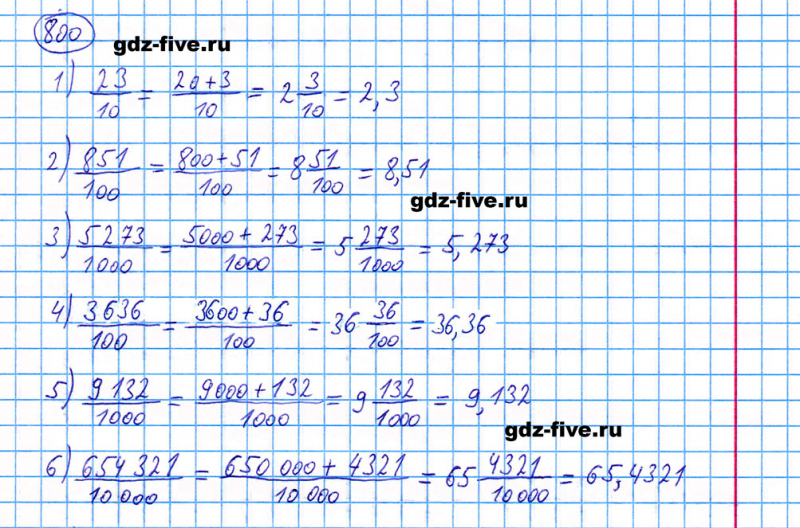 800
gdz-five.ru
1) 23/10 = 20+3/10 = 2 3/10 = 2,3
2) 851/100 = 800+51/100 = 8 51/100 = 8,51
gdz-five.ru
3) 5273/1000 = 5000+273/1000 = 5 273/1000 = 5,273
4) 3636/100 = 3600+36/100 = 36 36/100 = 36,36
5) 9132/1000 = 9000+132/1000 = 9 132/1000 = 9,132
gdz-five.ru
6) 654321/10000 = 650000+4321/10000 = 65 4321/10000 = 65,4321